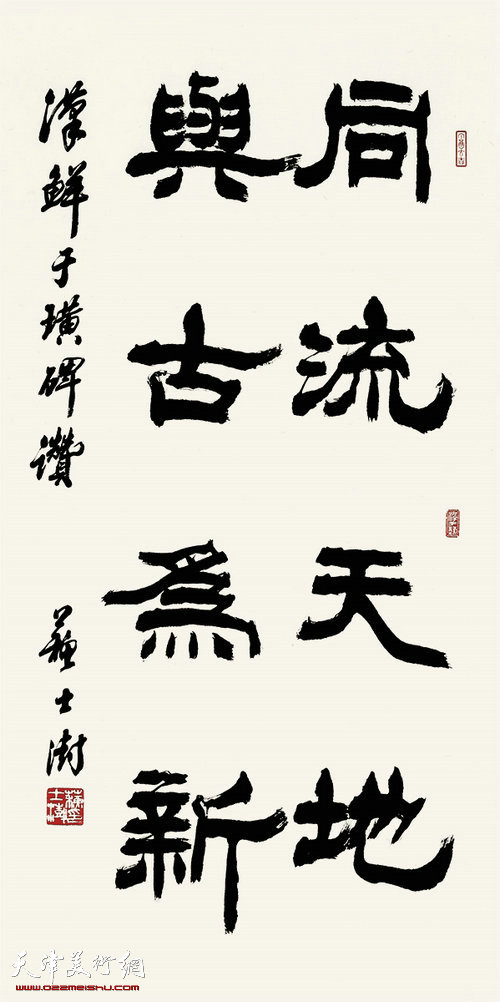 同流天地
與古為新
漢鮮于璜碑讚
蘇士澍
天津美術網
www.022meishu.com